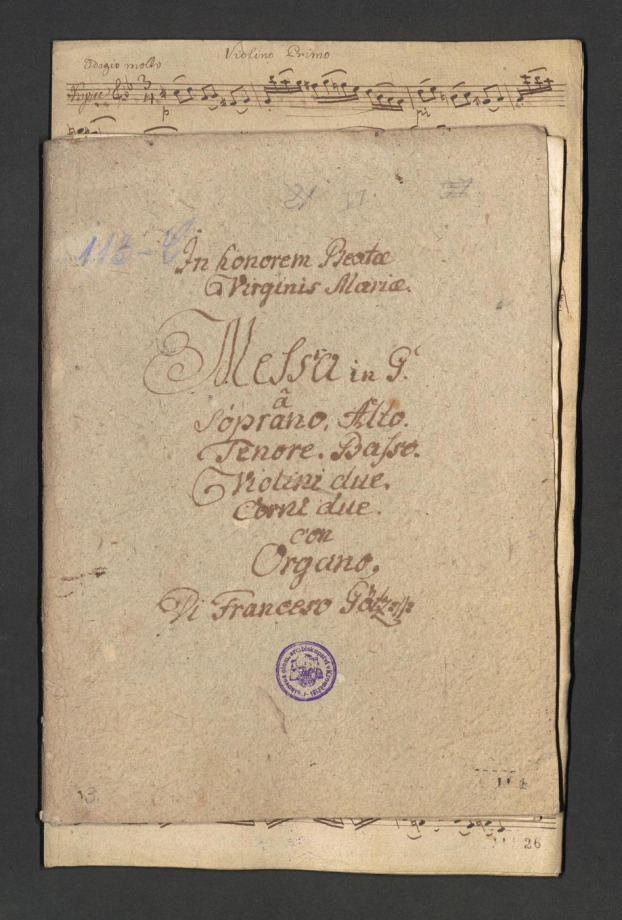 Violino Primo
Adagio molto
3
4
p
21 VI
In honorem Beatæ
Virginis Mariæ.
Messa in G.
â
Soprano, Alto.
Tenore. Basso.
Violini due.
Corni due.
con
Organo.
Di Franceso Götz
13.
114
26